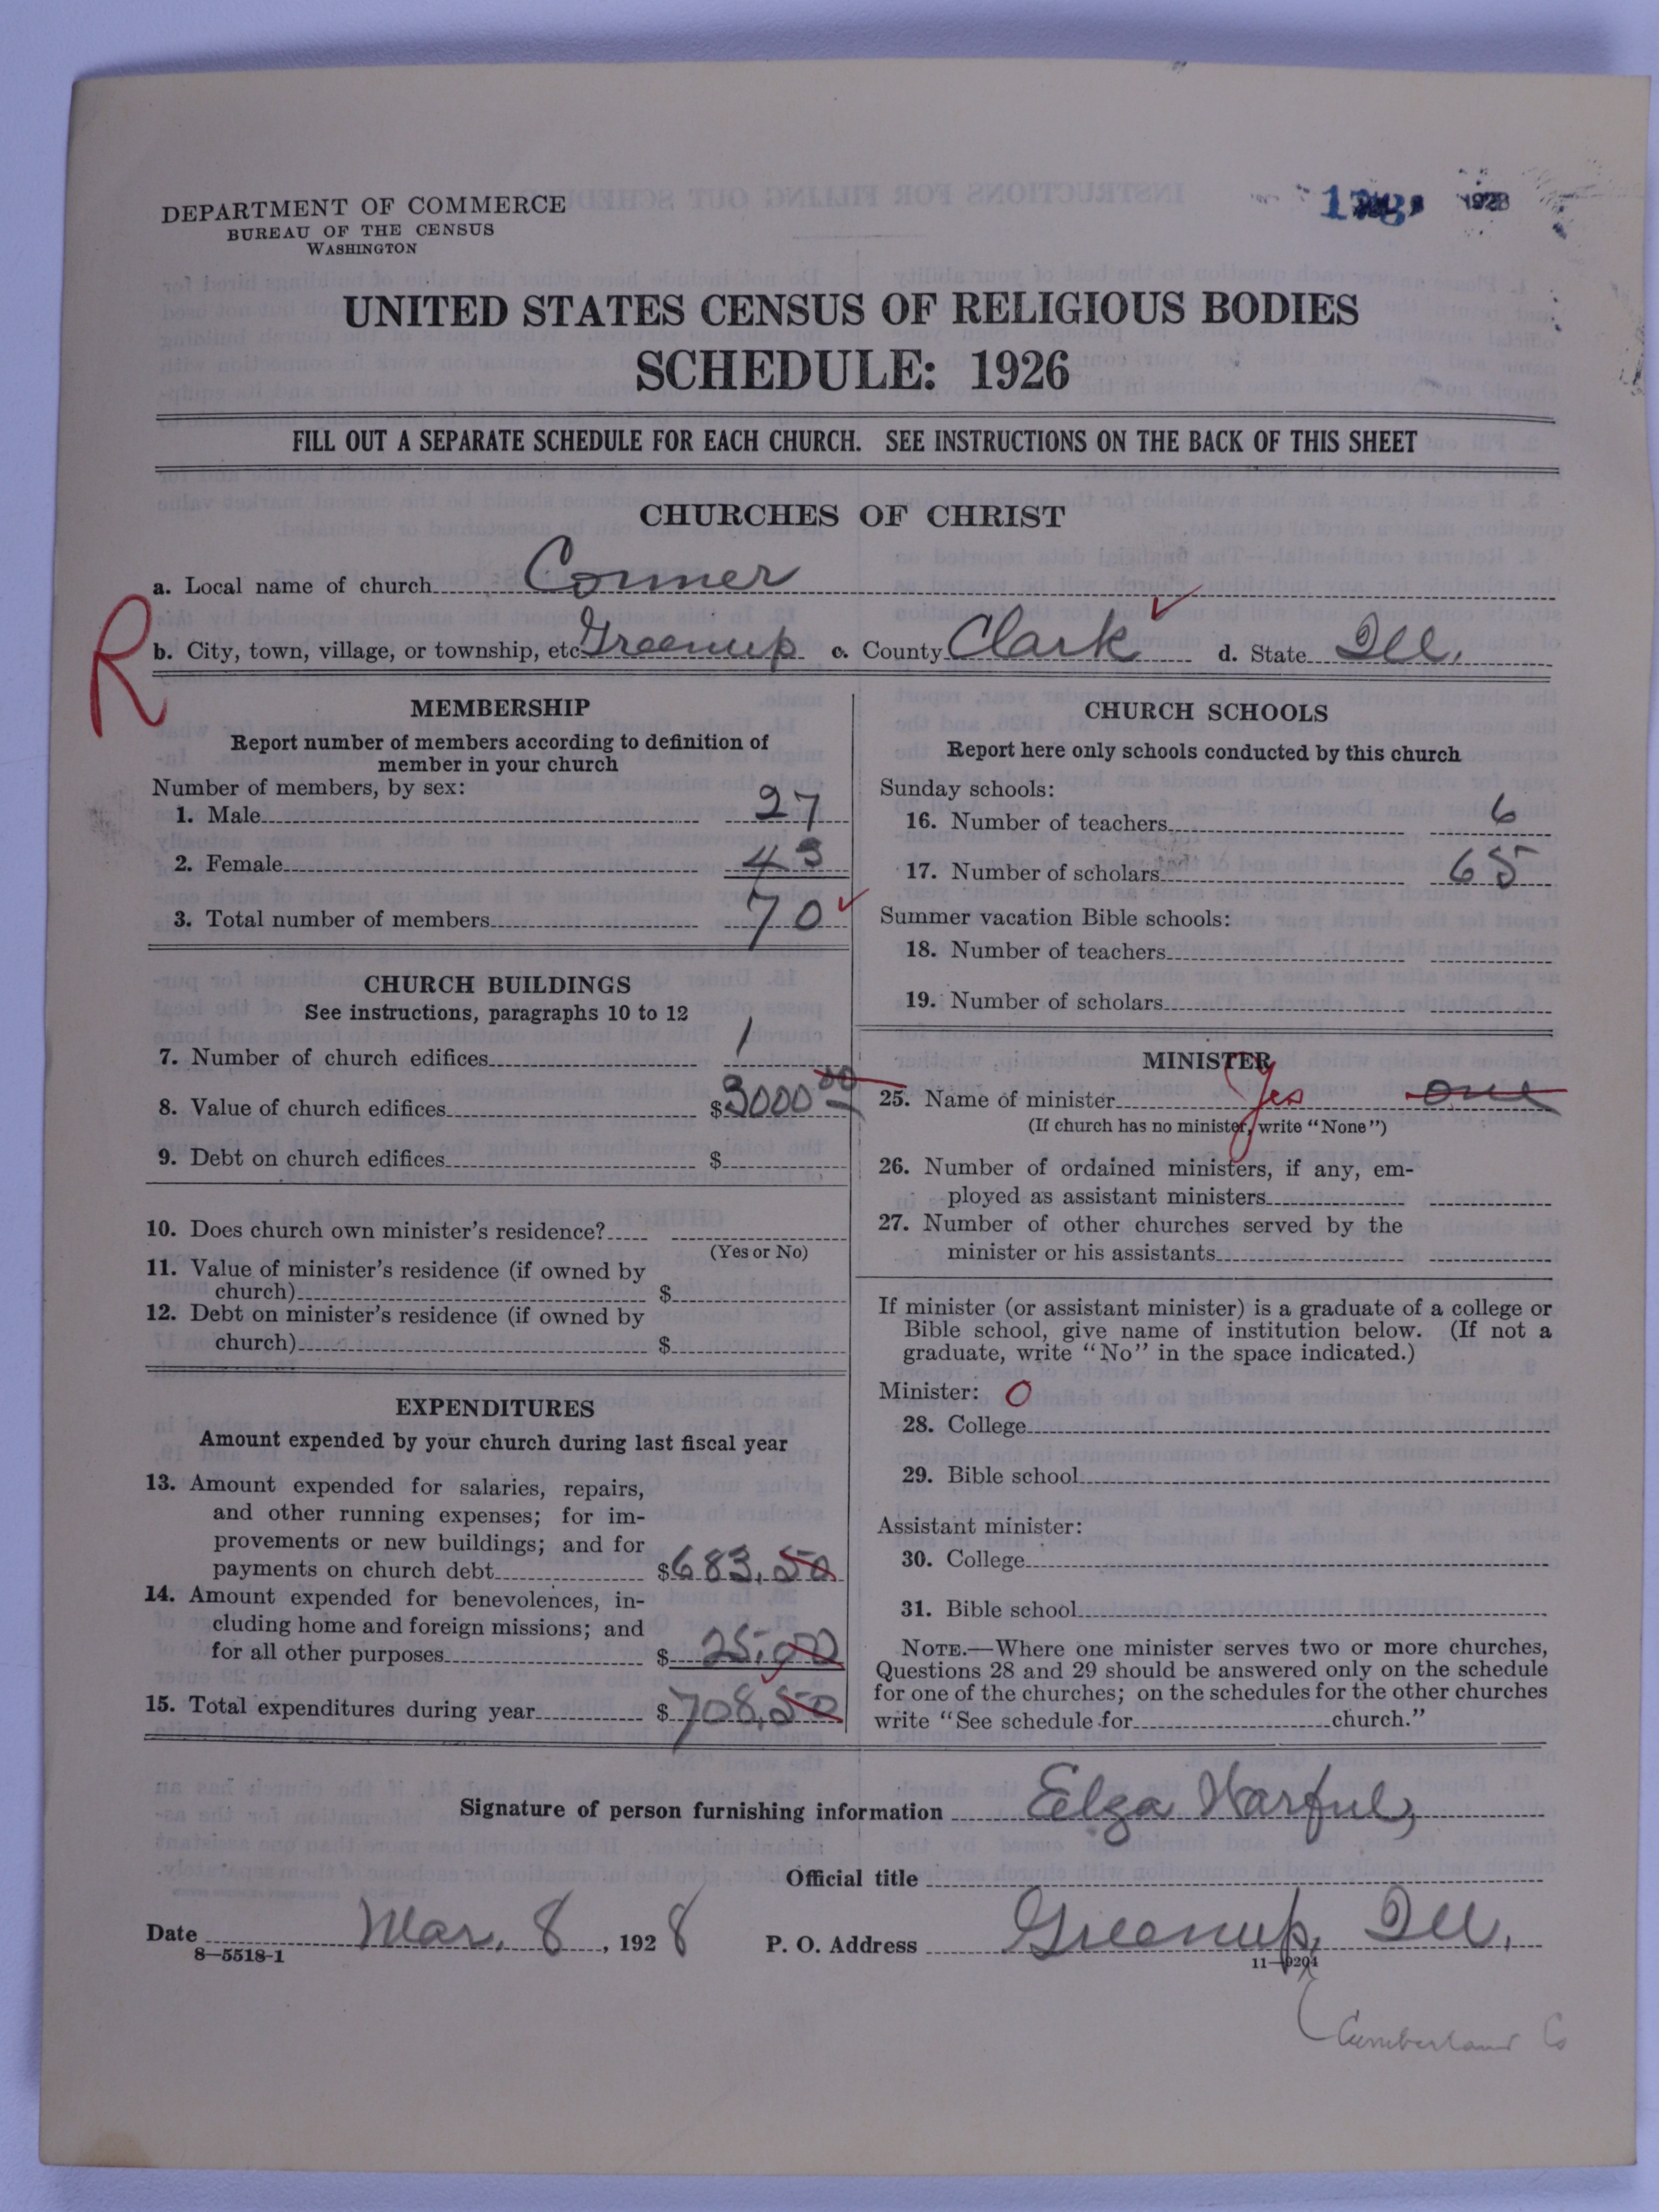 DEPARTMENT OF COMMERCE
BUREAU OF THE CENSUS
WASHINGTON
1928
UNITED STATES CENSUS OF RELIGIOUS BODIES
SCHEDULE: 1926
FILL OUT A SEPARATE SCHEDULE FOR EACH CHURCH. SEE INSTRUCTIONS ON THE BACK OF THIS SHEET
CHURCHES OF CHRIST
a. Local name of church Conner
R
b. City, town, village, or township, etc. Greenup c. County Clark ✓ d. State Ill.
MEMBERSHIP
Report number of members according to definition of
member in your church
Number of members, by sex:
1. Male 27
2. Female 43
3. Total number of members 70 ✓
CHURCH BUILDINGS
See instructions, paragraphs 10 to 12
7. Number of church edifices 1
8. Value of church edifices $3000 00
9. Debt on church edifices $
10. Does church own minister's residence?
(Yes or No)
11. Value of minister's residence (if owned by
church) $
12. Debt on minister's residence (if owned by
church) $
EXPENDITURES
Amount expended by your church during last fiscal year
13. Amount expended for salaries, repairs,
and other running expenses; for im-
provements or new buildings; and for
payments on church debt $683.50
14. Amount expended for benevolences, in-
cluding home and foreign missions; and
for all other purposes $25.00
15. Total expenditures during year $708.50
CHURCH SCHOOLS
Report here only schools conducted by this church
Sunday schools:
16. Number of teachers 6
17. Number of scholars 65
Summer vacation Bible schools:
18. Number of teachers
19. Number of scholars
MINISTER
25. Name of minister Yes one
(If church has no minister, write "None")
26. Number of ordained ministers, if any, em-
ployed as assistant ministers
27. Number of other churches served by the
minister or his assistants
If minister (or assistant minister) is a graduate of a college or
Bible school, give name of institution below. (If not a
graduate, write "No" in the space indicated.)
Minister: O
28. College
29. Bible school
Assistant minister:
30. College
31. Bible school
NOTE.—Where one minister serves two or more churches,
Questions 28 and 29 should be answered only on the schedule
for one of the churches; on the schedules for the other churches
write "See schedule for church."
Signature of person furnishing information Elza Warful,
Official title
Date Mar. 8, 1928 P. O. Address Greenup, Ill.
8—5518-1
11—9204
Cumberland Co